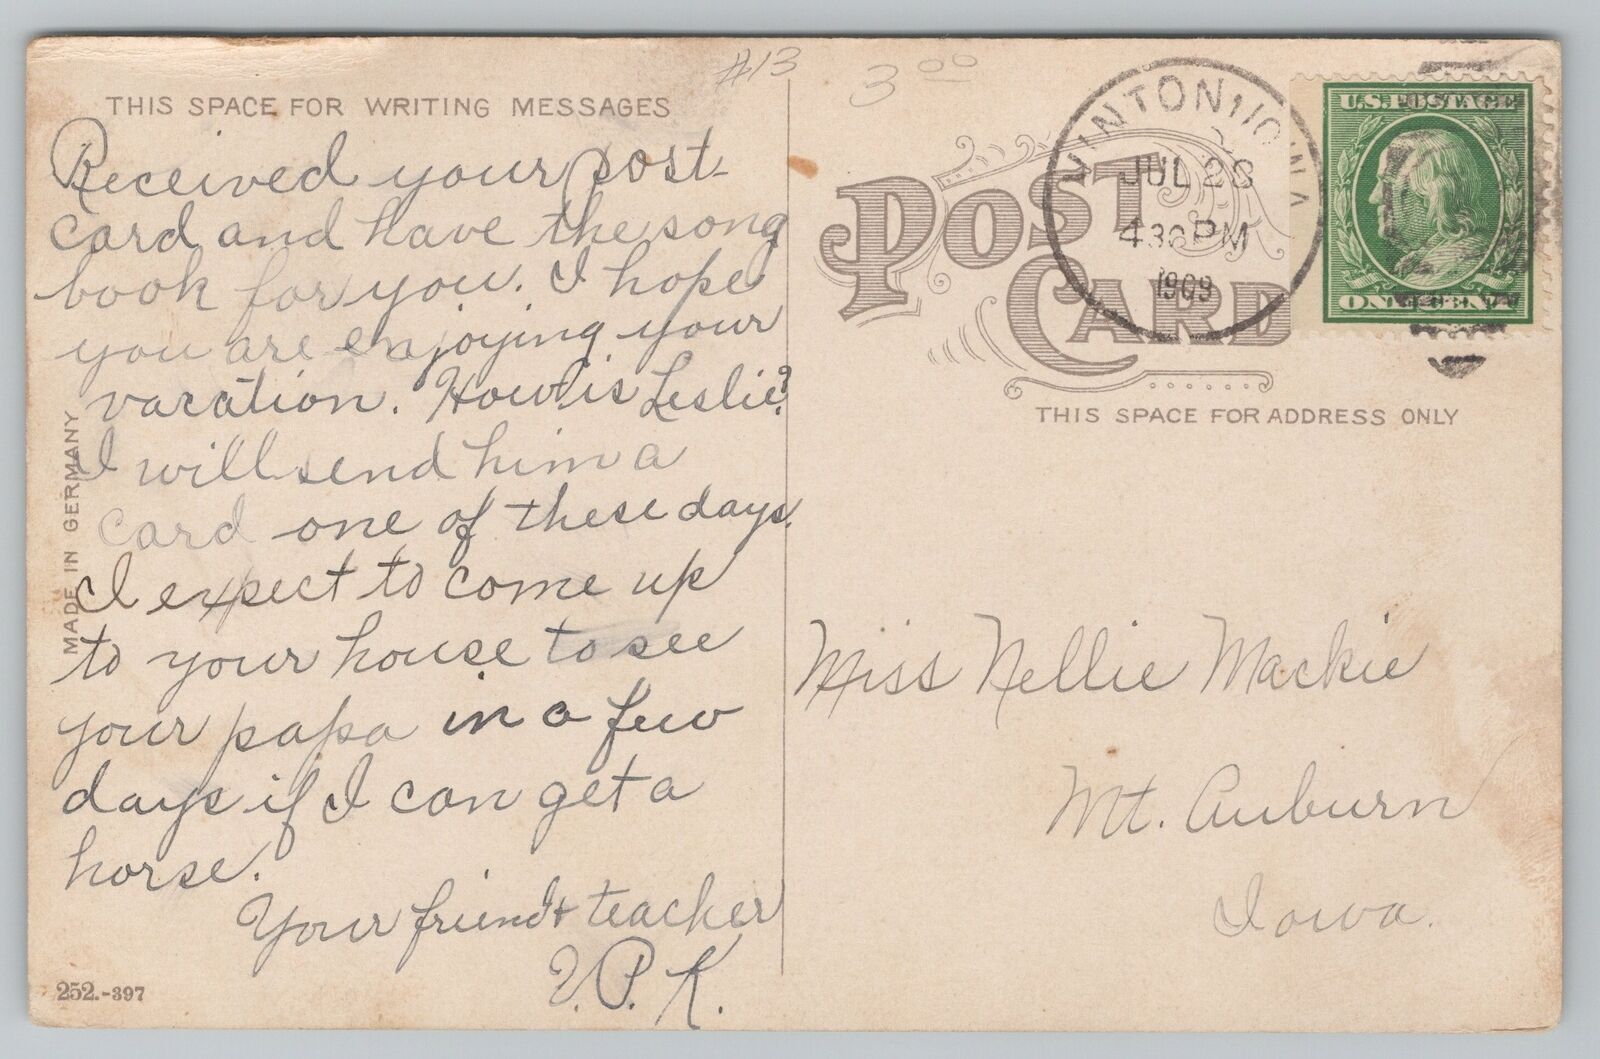 #13
3 00
THIS SPACE FOR WRITING MESSAGES
Received your post-
card and have the song
book for you. I hope
you are enjoying your
vacation. How is Leslie?
I will send him a
card one of these days.
I expect to come up
to your house to see
your papa in a few
days if I can get a
horse.
Your friend + teacher
P. K.
MADE IN GERMANY
252.-397
VINTON
JUL 28
430 PM
1909
U.S. POSTAGE
ONE CENT
POST CARD
THIS SPACE FOR ADDRESS ONLY
Miss Nellie Mackie
Mt. Auburn
Iowa.